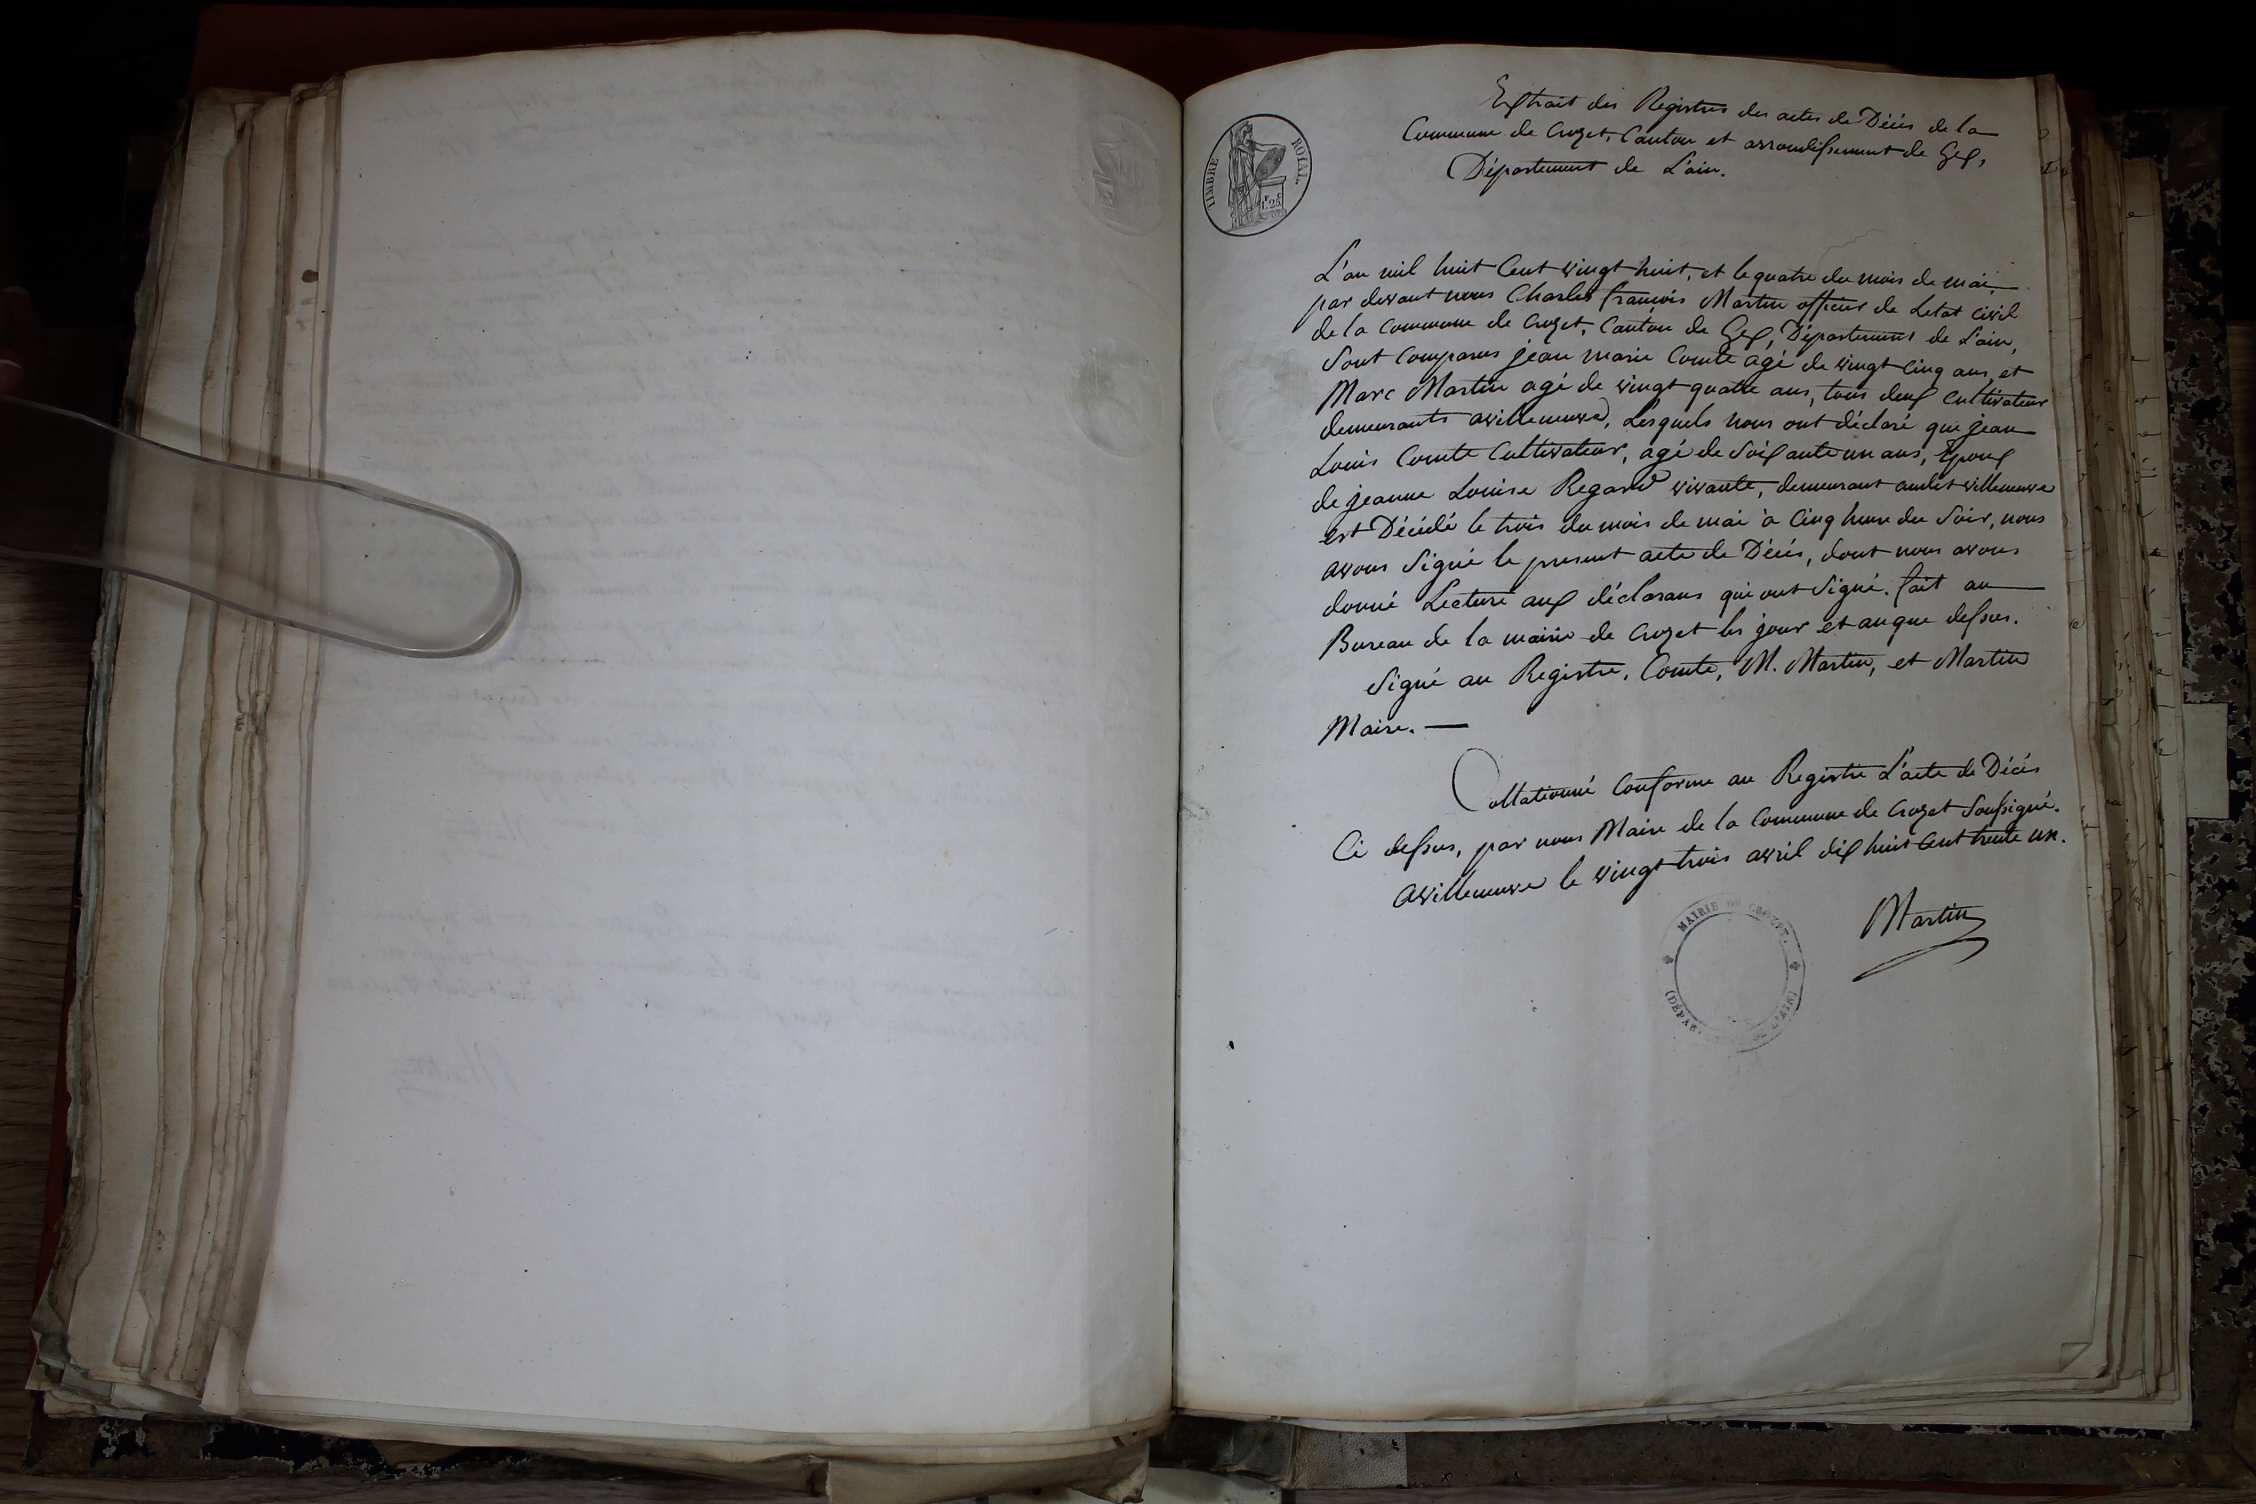 Extrait des Registres des actes de Décès de la
Commune de Crozet, Canton et arrondissement de Gex,
Département de L'ain.
TIMBRE ROYAL
1 F 25 C
L'an mil huit Cent vingt huit, et le quatre du mois de mai,
par devant nous Charles françois Martin officier de Letat civil
de la commune de Crozet, Canton de Gex, Département de L'ain,
Sont Comparus jean marie Comte agé de vingt Cinq ans, et
Marc Martin agé de vingt quatre ans, tous deux Cultivateur
demeurants avilleneuve, Lesquels nous ont déclaré que jean
Louis Comte Cultivateur, agé de Soixante un ans, Epoux
de jeanne Louise Regard vivante, demeurant audit villeneuve
est Décédé le trois du mois de mai à Cinq heure du Soir, nous
avons Signé le present acte de Décés, dont nous avons
donné Lecture aux déclarans qui ont Signé. fait au
Bureau de la mairie de Crozet les jour et an que dessus.
Signé au Registre, Comte, M. Martin, et Martin
Maire. —
Collationné Conforme au Registre L'acte de Décès
Ci dessus, par nous Maire de la Commune de Crozet Soussigné.
avilleneuve le vingt trois avril dix huit Cent trente un.
Martin
MAIRIE DE CROZET.
(DÉPAR. DE L'AIN)